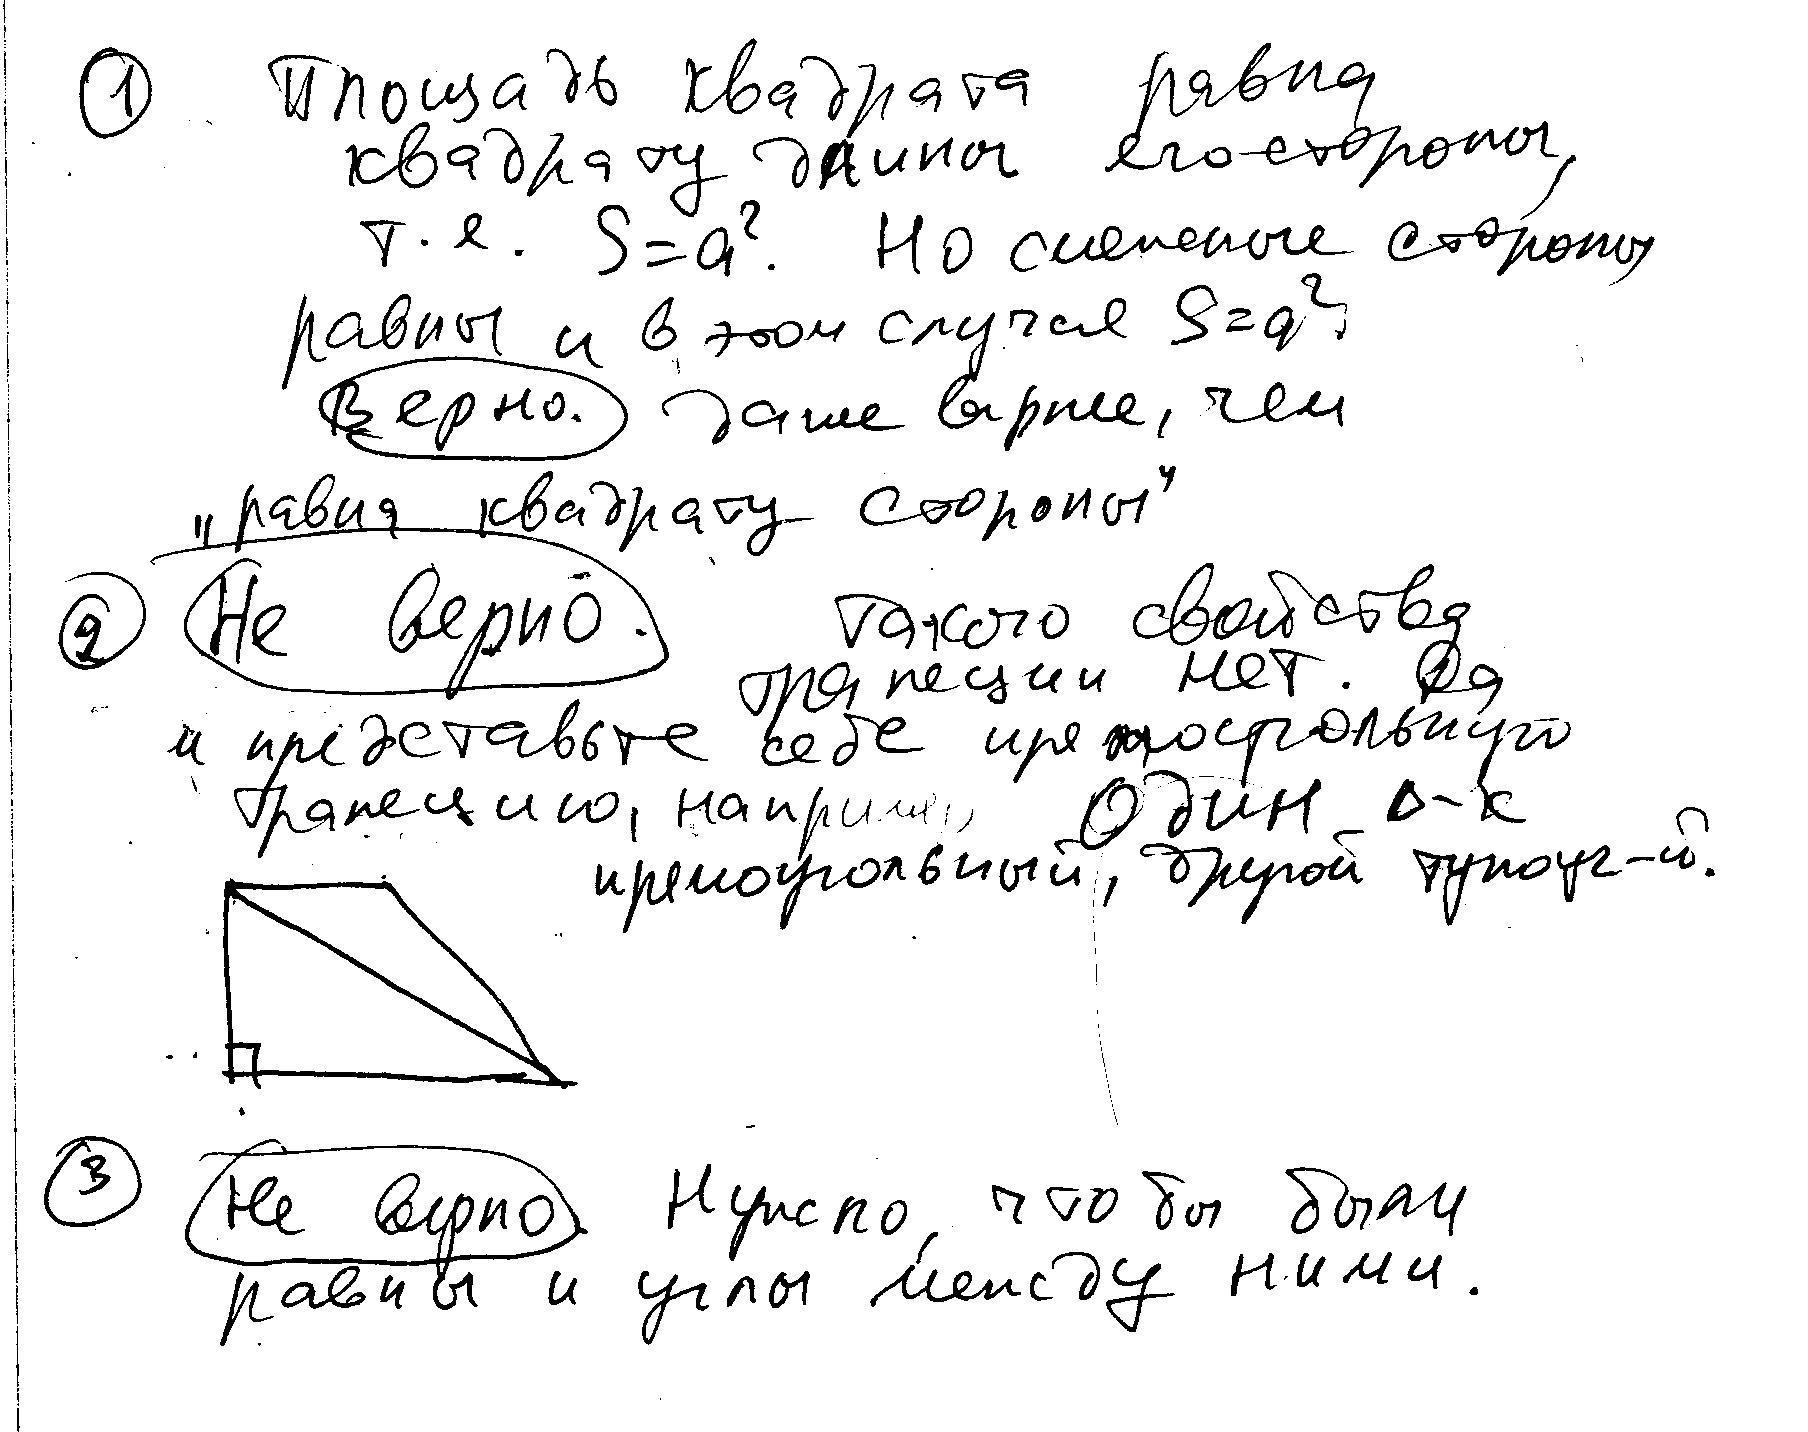 ① Площадь квадрата равна
квадрату длины его стороны,
т.е. S=a². Но смежные стороны
равны и в этом случае S=a².
Верно. Даже вернее, чем
„равна квадрату стороны"
② Не верно. Такого свойства
трапеции нет. Да
и представьте себе прямоугольную
трапецию, наприм., Один Δ-к
прямоугольный, другой тупоуг-й.
③ Не верно. Нужно, чтобы были
равны и углы между ними.